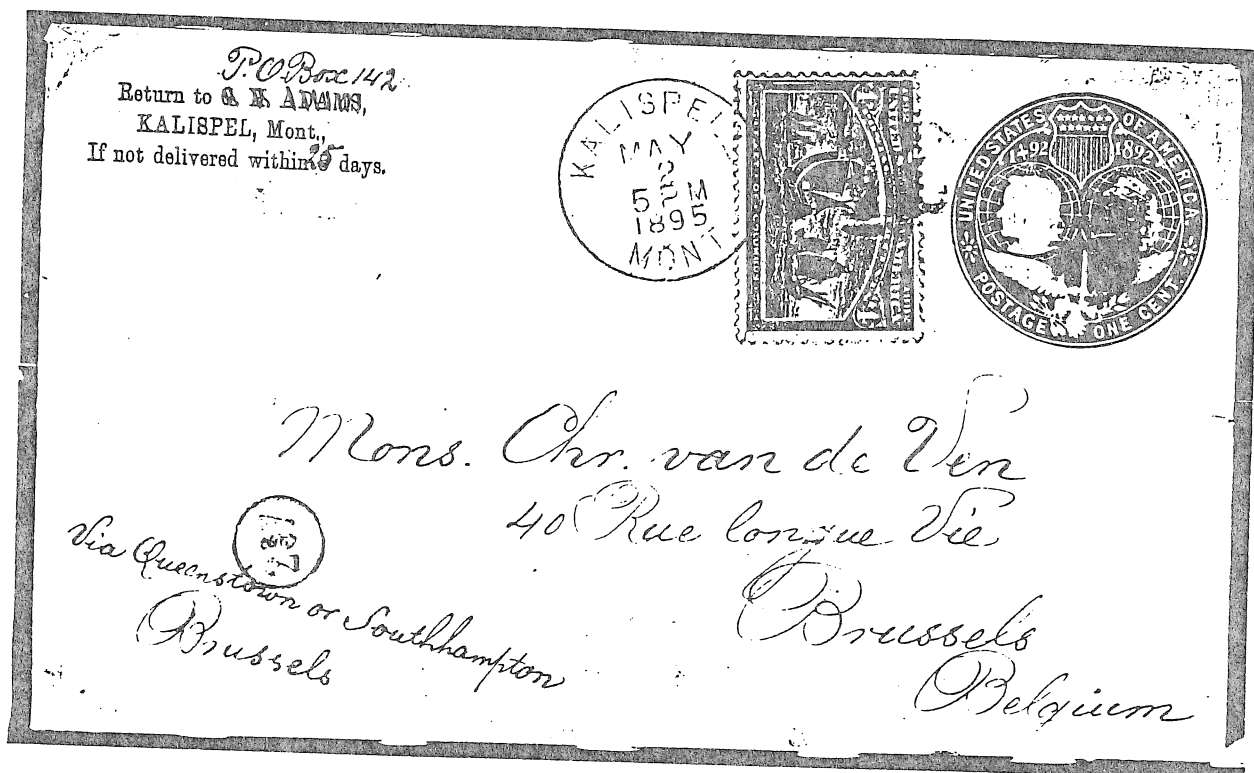 P.O Box 142
Return to
KALISPEL, Mont.,
If not delivered within days.
KALISPEL
MAY
5 PM
1895
MONT
UNITED STATES OF AMERICA
1492 1892
POSTAGE ONE CENT.
Mons. Chr. van de Ven
40 Rue longue Vie
Brussels
Belgium
Via Queenstown or Southhampton
Brussels